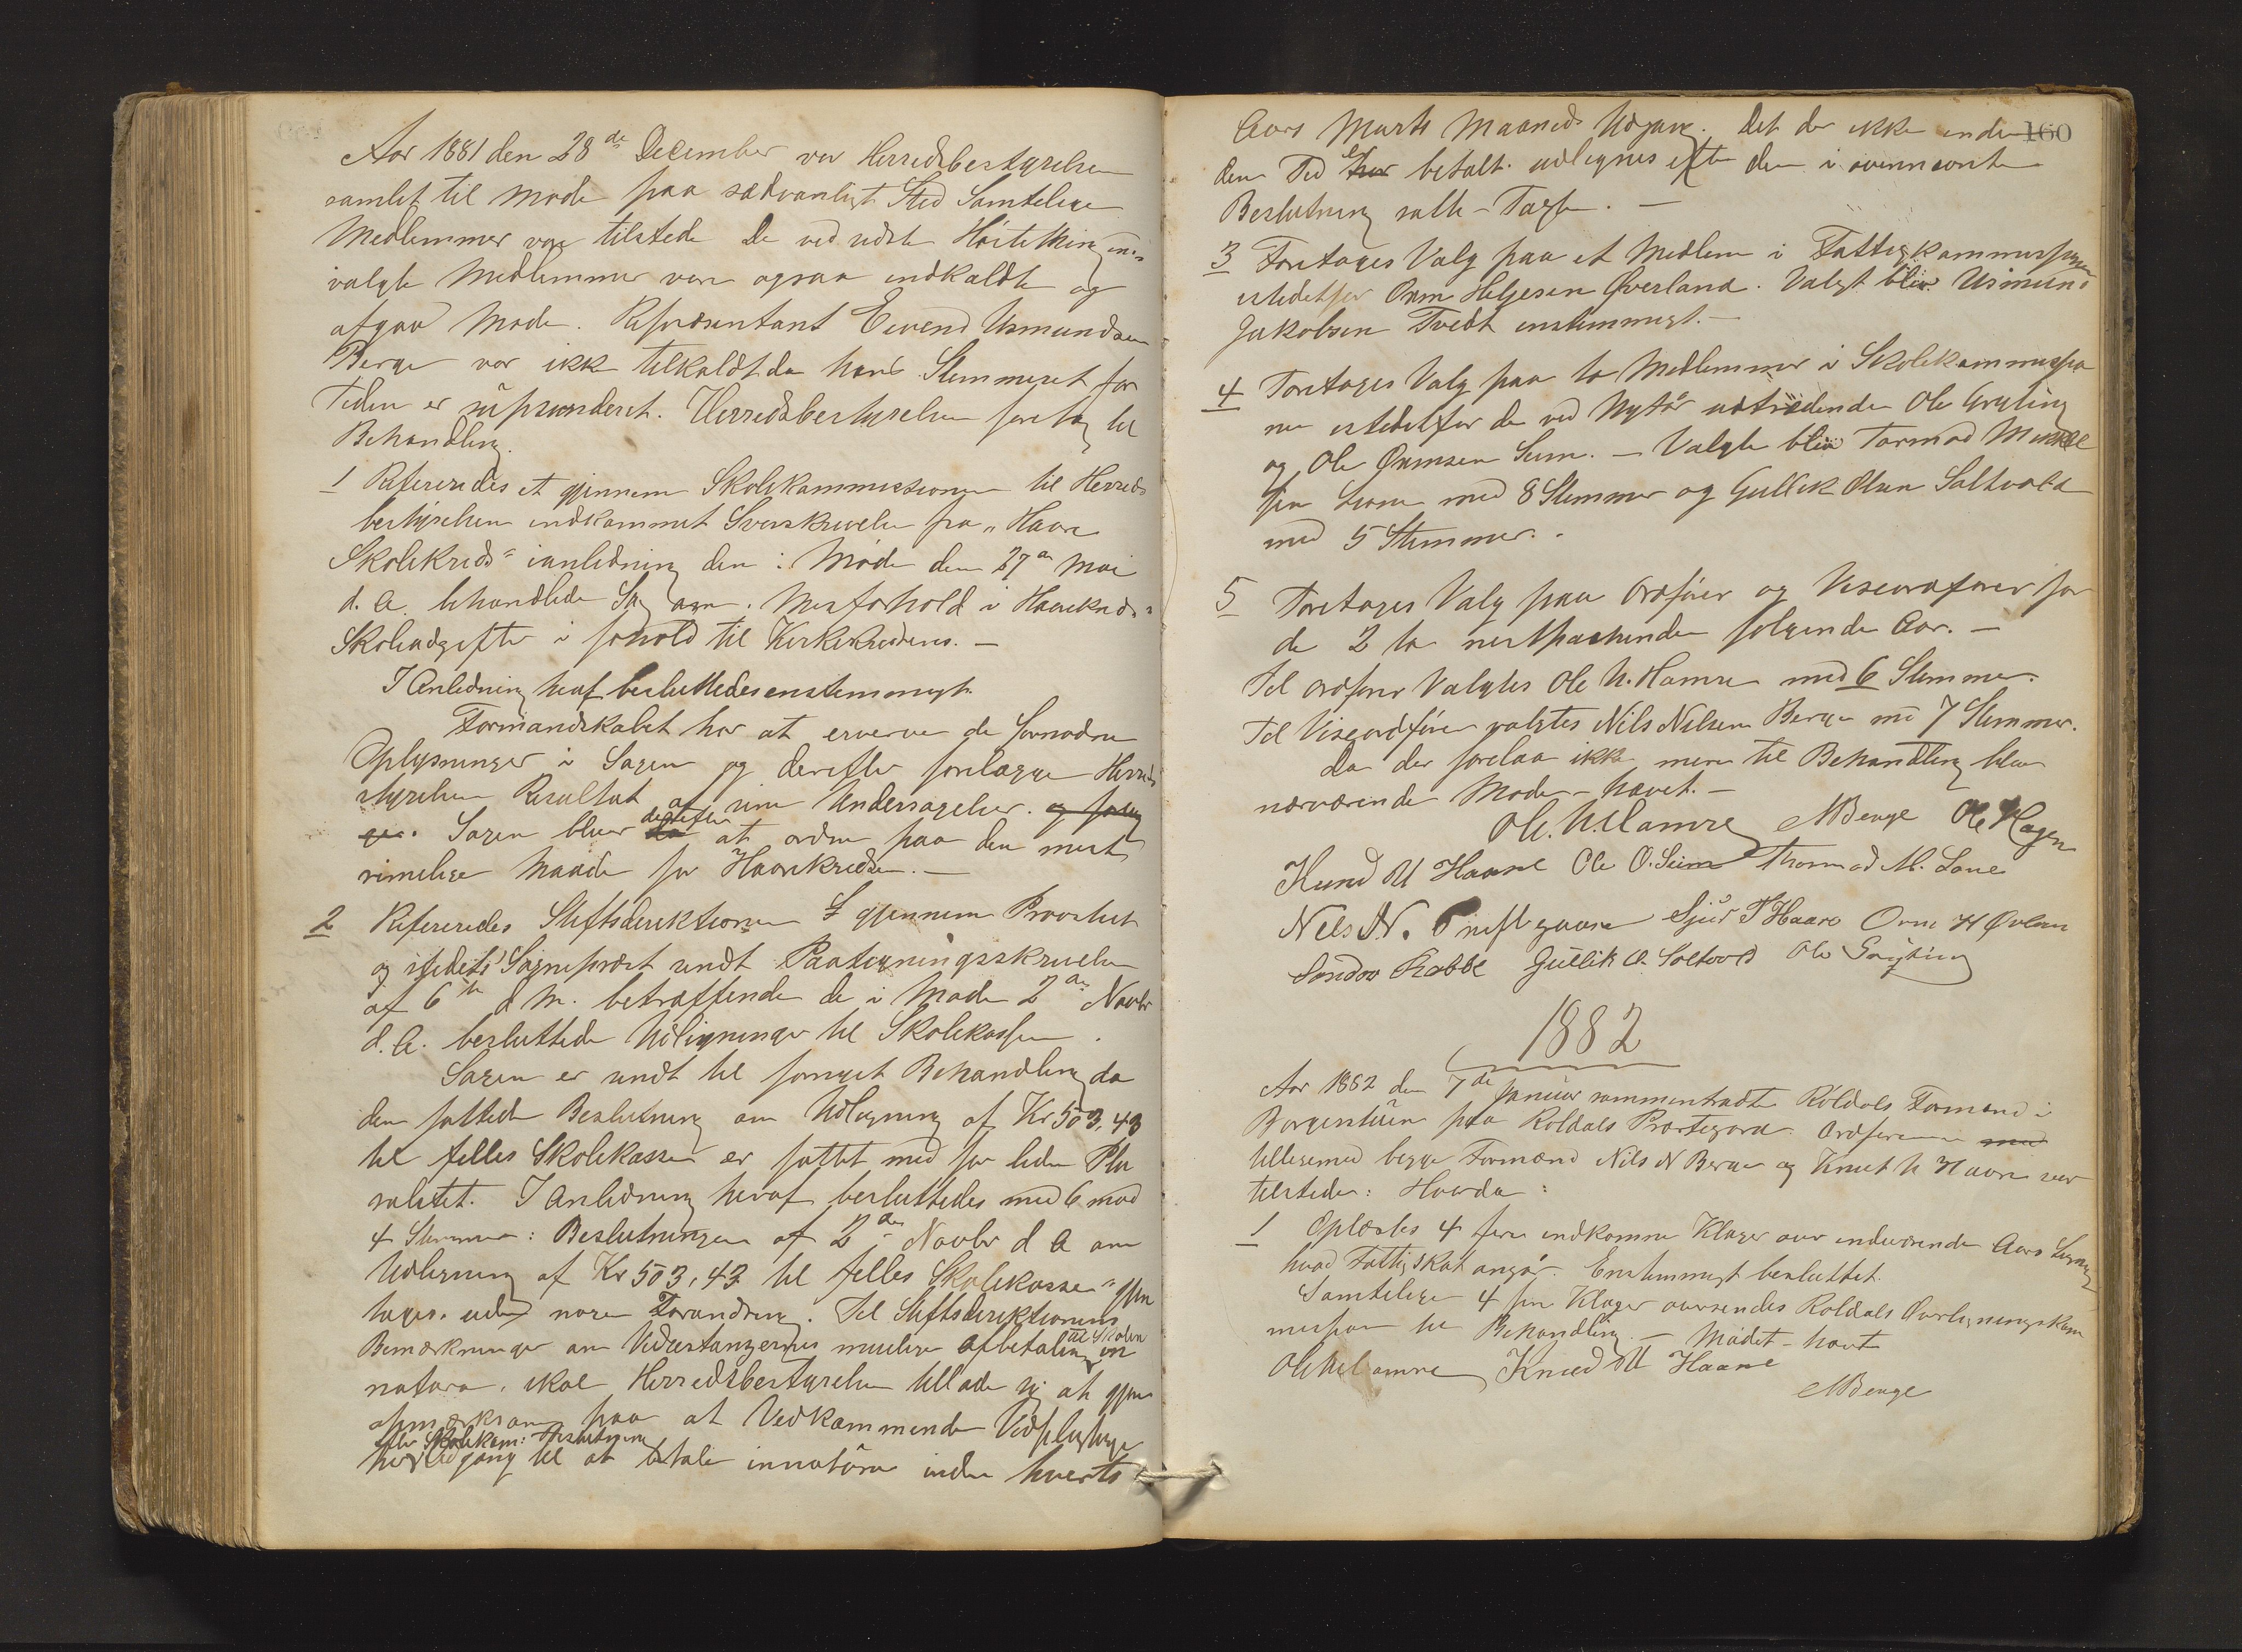 Aar 1881 den 28de December var Herredsbestyrelsen
samlet til Møde paa sædvanligt Sted Samtelige
Medlemmer var tilstede De ved sidste
valgte Medlemmer var ogsaa indkaldte og
afgav Møde. Repræsentant Eivend Asmundsen
Berge var ikke tilkaldt da hans Stemmeret for
Tiden er suspenderet. Herredsbestyrelsen foretog til
Behandling.
1 Refereredes et gjennem Skolekommissionen til Herreds
bestyrelsen indkommet Svarskrivelse fra "Haare
Skolekreds" ianledning den i Møde den 27de Mai
d. A. behandlede Sag ang. Misforhold i Haarekreds
Skoleudgifter i forhold til Kirkekredsens. —
I Anledning heraf besluttedes enstemmigt.
Formandskabet har at erverve de fornødne
Oplysninger i Sagen og derefter forelægge Herreds
styrelsen Resultat af sine Undersøgelser.
Sagen bliver derefter at ordne paa den mest
rimelige Maade for Haarekredsen. —
2 Refereredes Stiftsdirektionen gjennem Provstiet
og Sogneprest sendt Paategningsskrivelse
af 6te d M. betræffende de i Møde 2den Novbr
d. A. besluttede Udligninger til Skolekassen.
Sagen er sendt til fornyet Behandling da
den fattede Beslutning om Udligning af Kr 503,43
til felles Skolekasse er fattet med for liden Plu
ralitet. I Anledning heraf besluttedes med 6 mod
4 Stemmer: Beslutningen af 2den Novbr d A om
Udligning af Kr 503,43 til felles Skolekasse" gjen
tages uden nogen Forandring. Til Stiftsdirektionens
Bemærkninger om mulige Afbetaling til Skolen in
natura, skal Herredsbestyrelsen tillade sig at gjøre
opmærksom paa at Vedkommende Vedpligtige
efter Skolekom: Beslutning
har Adgang til at betale innatura inden hvert
160
Aars Marts Maaneds Udgang. Det der ikke inden
den Tid er betalt udlignes efter den i ovennevnte
Beslutning satte Taxt. —
3 Foretoges Valg paa et Medlem i Fattigkommissionen
istedetfor Orm Heljesen Øverland. Valgt blev Asmund
Jakobsen Tvedt enstemmigt. —
4 Foretoges Valg paa to Medlemmer i Skolekommissio
nen istedetfor de ved Nytår udtrædende Ole Gryting
og Ole Ormsen Seim. — Valgte blev Tormod Mikkel
sen Lone med 8 Stemmer og Gullik Olsen Saltvold
med 5 Stemmer.
5 Foretoges Valg paa Ordfører og Viseordfører for
de 2 to nestpaahende følgende Aar. —
Til Ordfører Valgtes Ole N. Hamre med 6 Stemmer.
Til Viseordfører valgtes Nils Nilsen Berge me 7 Stemmer.
Da der forelaa ikke mere til Behandling blev
nærværende Møde hævet. —
Ole. N. Hamre NBerge Ole Hagen
Knud U Haare Ole O. Seim Thormod M. Lone
Nels N. Prestgaard Sjur T Haare Orm H Øvland
Sondov Rabbe Gullik O. Saltvold Ole Gryting
1882
Aar 1882 den 7de Januar sammentraadte Röldals Formænd i
Borgerstuen paa Roldals Prestegard. Ordføreren med
tilligemed begge Formænd Nils N Berge og Knut U Haare var
tilstede: Hvorda:
1 Oplæstes 4 fire indkomne Klager over indeværende Aars Ligning
hvad Fattigskat angår. Enstemmigt besluttet.
Samtelige 4 fire Klager oversendes Roldals Overligningskom
mission til Behandling. — Mødet hævt
Ole N Hamre Knud U Haare
NBerge